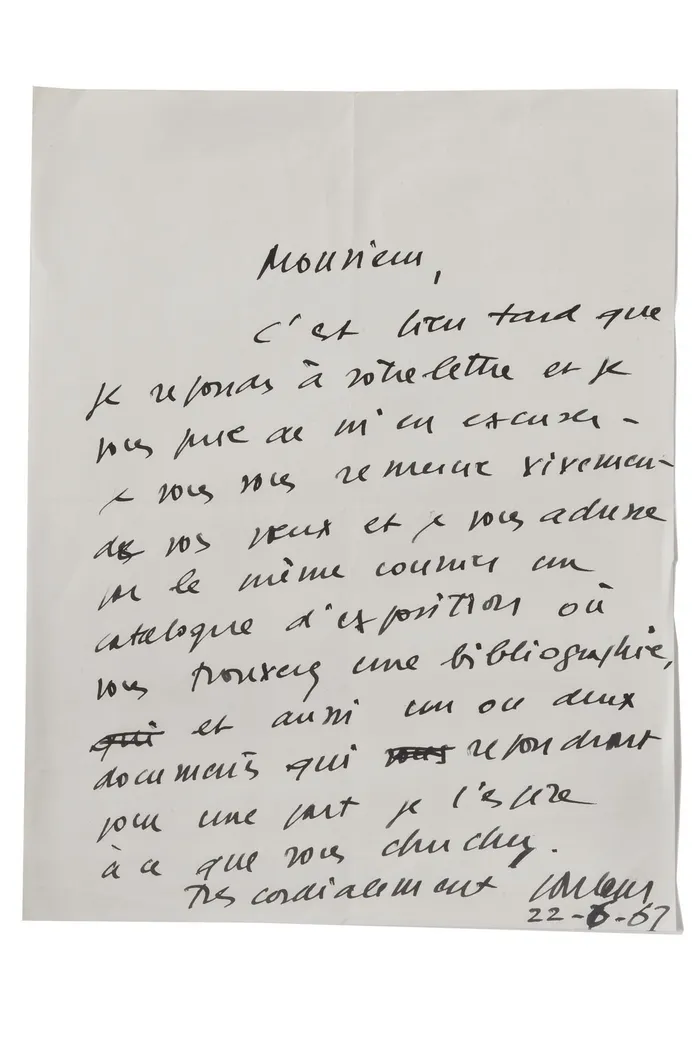 Monsieur,
C'est bien tard que
je reponds à votre lettre et je
vous prie de m'en excuser -
je vous vous remercie vivement
de vos voeux et je vous adresse
par le même courrier un
catalogue d'exposition où
vous trouverez une bibliographie,
qui et aussi un ou deux
documents qui vous repondront
pour une part je l'espère
à ce que vous cherchez.
Très cordialement
22-6-67